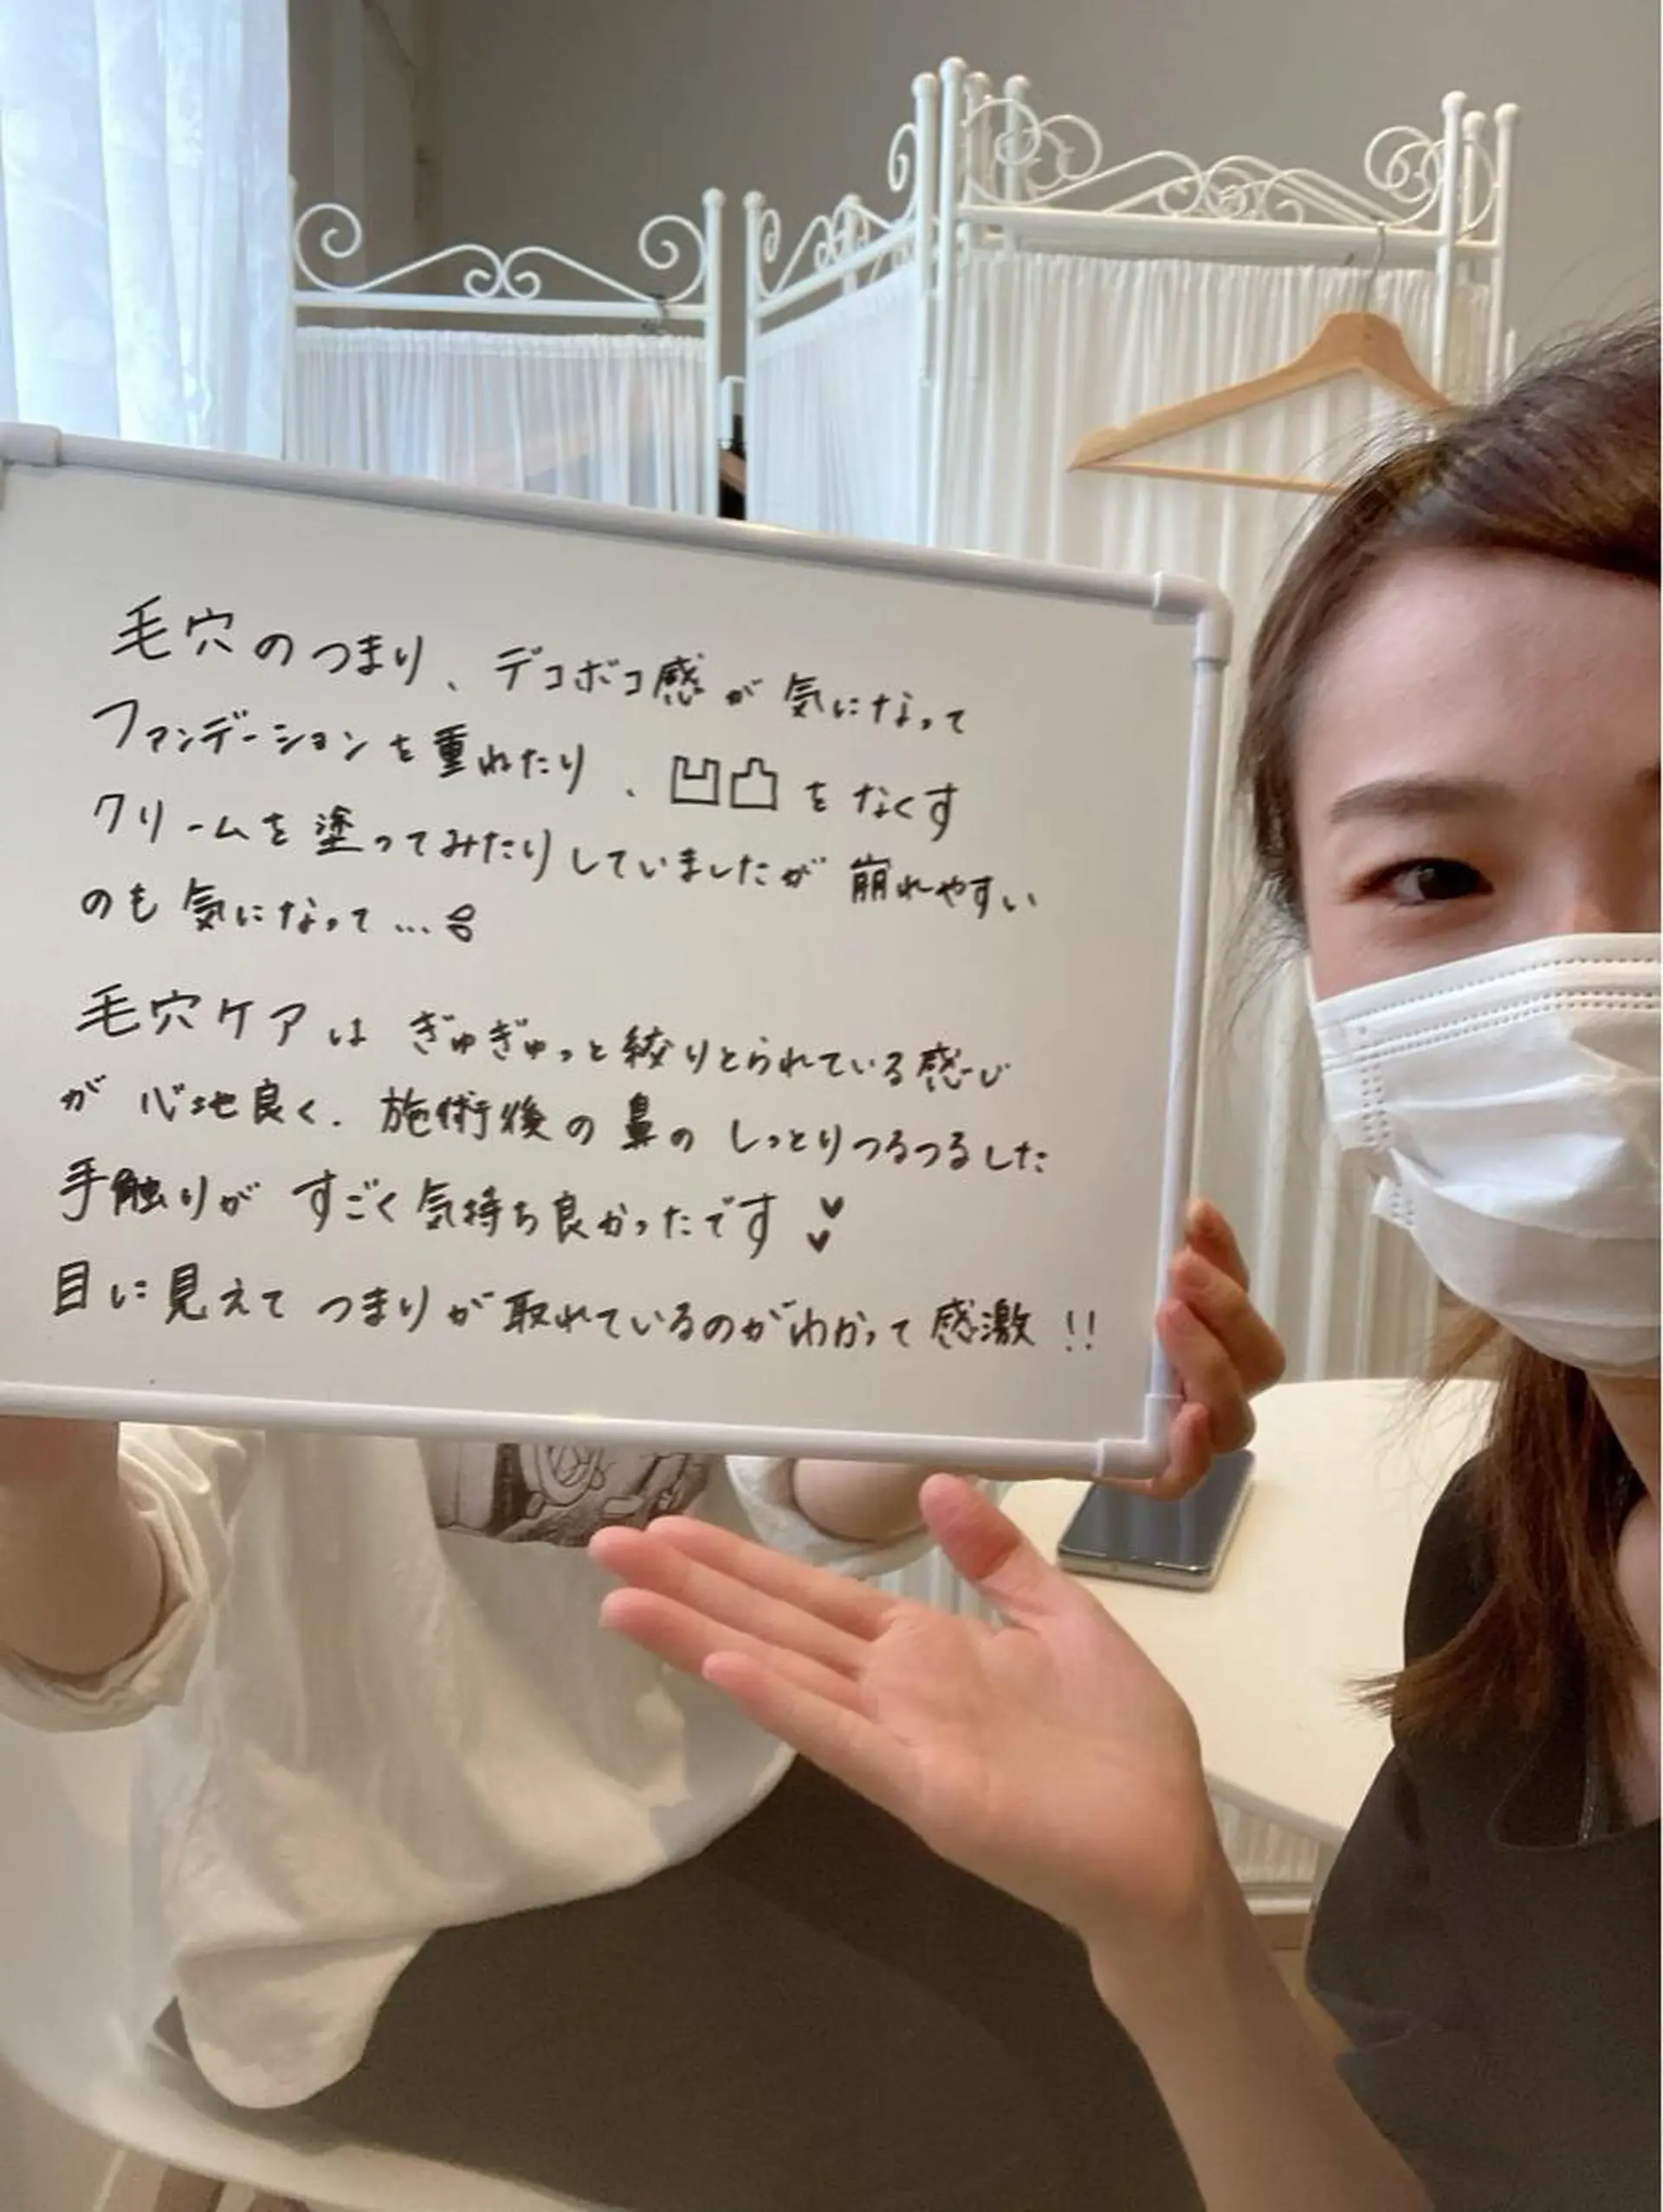 毛穴のつまり、デコボコ感が気になって
ファンデーションを重ねたり、凹凸をなくす
クリームを塗ってみたりしていましたが崩れやすい
のも気になって…
毛穴ケアはぎゅぎゅっと絞りとられている感じ
が心地良く、施術後の鼻のしっとりつるつるした
手触りがすごく気持ち良かったです
目に見えてつまりが取れているのがわかって感激!!